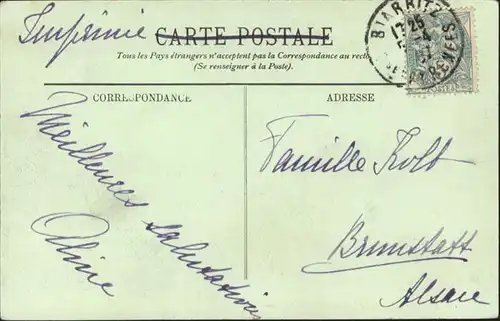 Imprimé
CARTE POSTALE
Tous les Pays étrangers n'acceptent pas la Correspondance au recto
(Se renseigner à la Poste).
BIARRITZ
CORRESPONDANCE
ADRESSE
Meilleures salutations
Aline
Famille Kolb
Brunstatt
Alsace